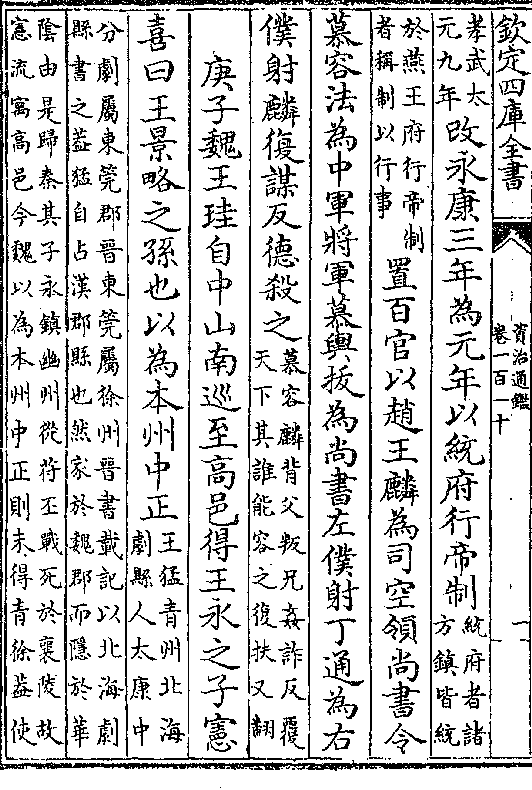 欽定四庫全書
資治通鑑
卷一百一十
一
孝武太
元九年
改永康三年為元年以統府行帝制
統府者諸
方鎮皆統
於燕王府行帝制
者稱制以行事
置百官以趙王麟為司空領尚書令
慕容法為中軍將軍慕輿拔為尚書左僕射丁通為右
僕射麟復謀反德殺之
慕容麟背父叛兄姦詐反覆
天下其誰能容之復扶又翻
庚子魏王珪自中山南巡至高邑得王永之子憲
喜曰王景略之孫也以為本州中正
王猛青州北海
劇縣人太康中
分劇屬東莞郡晉東莞屬徐州晉書載記以北海劇
縣書之葢猛自占漢郡縣也然家於魏郡而隱於華
陰由是歸秦其子永鎮幽州從苻丕戰死於襄陵故
憲流寓高邑今魏以為本州中正則未得青徐葢使